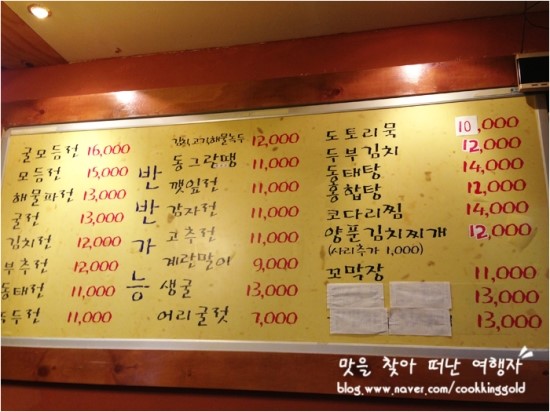 굴모듬전 16,000
모듬전 15,000
해물파전 13,000
굴전 13,000
김치전 12,000
부추전 12,000
동태전 11,000
녹두전 11,000
반반가능
김치,고기,해물녹두 12,000
동그랑땡 11,000
깻잎전 11,000
감자전 11,000
고추전 11,000
계란말이 9,000
생굴 13,000
어리굴젓 7,000
도토리묵 10,000
두부김치 12,000
동태탕 14,000
홍합탕 12,000
코다리찜 14,000
양푼김치찌개 12,000
(사리추가 1,000)
꼬막장 11,000
13,000
13,000
맛을 찾아 떠난 여행자
blog.www.naver.com/cookkinggold